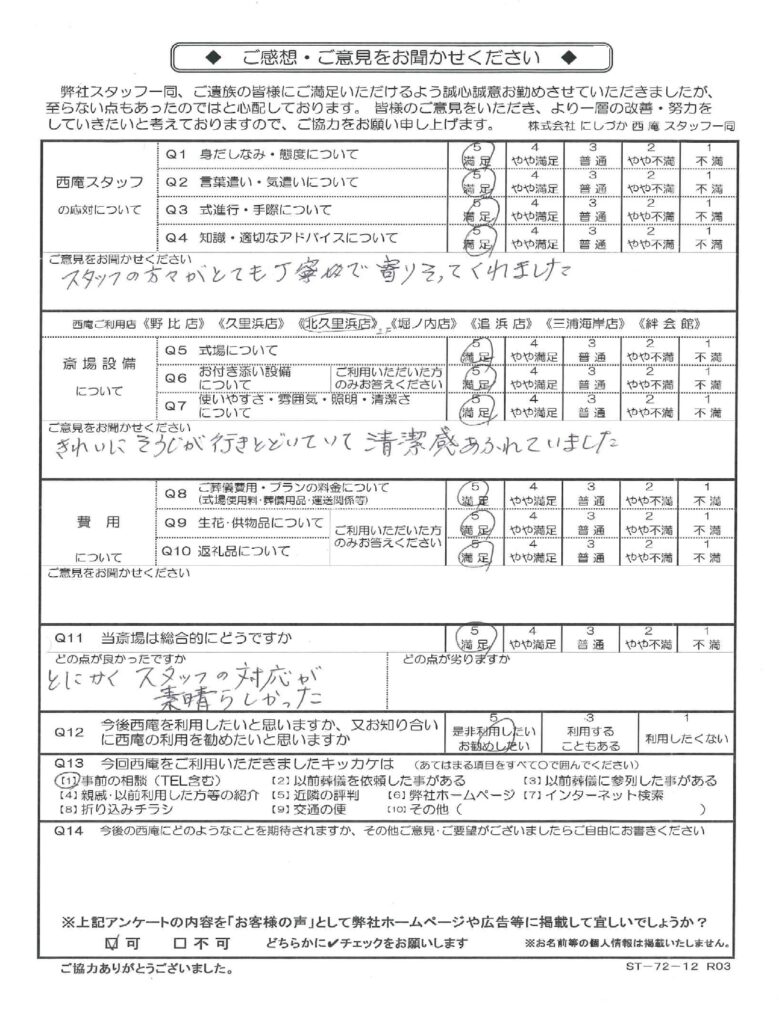 ◆ ご感想・ご意見をお聞かせください ◆
弊社スタッフ一同、ご遺族の皆様にご満足いただけるよう誠心誠意お勤めさせていただきましたが、
至らない点もあったのではと心配しております。 皆様のご意見をいただき、より一層の改善・努力を
していきたいと考えておりますので、ご協力をお願い申し上げます。 株式会社 にしづか 西庵 スタッフ一同
西庵スタッフ
の応対について
Q1 身だしなみ・態度について 5 満足 4 やや満足 3 普通 2 やや不満 1 不満
Q2 言葉遣い・気遣いについて 5 満足 4 やや満足 3 普通 2 やや不満 1 不満
Q3 式進行・手際について 5 満足 4 やや満足 3 普通 2 やや不満 1 不満
Q4 知識・適切なアドバイスについて 5 満足 4 やや満足 3 普通 2 やや不満 1 不満
ご意見をお聞かせください
スタッフの方々がとても丁寧で寄りそってくれました
西庵ご利用店《野比店》《久里浜店》《北久里浜店》《堀ノ内店》《追浜店》《三浦海岸店》《絆会館》
斎場設備
について
Q5 式場について 5 満足 4 やや満足 3 普通 2 やや不満 1 不満
Q6 お付き添い設備について ご利用いただいた方のみお答えください 5 満足 4 やや満足 3 普通 2 やや不満 1 不満
Q7 使いやすさ・雰囲気・照明・清潔さについて 5 満足 4 やや満足 3 普通 2 やや不満 1 不満
ご意見をお聞かせください
きれいにそうじが行きとどいていて清潔感あふれていました
費用
について
Q8 ご葬儀費用・プランの料金について (式場使用料・葬儀用品・運送関係等) 5 満足 4 やや満足 3 普通 2 やや不満 1 不満
Q9 生花・供物品について ご利用いただいた方のみお答えください 5 満足 4 やや満足 3 普通 2 やや不満 1 不満
Q10 返礼品について 5 満足 4 やや満足 3 普通 2 やや不満 1 不満
ご意見をお聞かせください
Q11 当斎場は総合的にどうですか 5 満足 4 やや満足 3 普通 2 やや不満 1 不満
どの点が良かったですか どの点が劣りますか
とにかくスタッフの対応が
素晴らしかった
Q12 今後西庵を利用したいと思いますか、又お知り合いに西庵の利用を勧めたいと思いますか 5 是非利用したいお勧めしたい 3 利用することもある 1 利用したくない
Q13 今回西庵をご利用いただきましたキッカケは (あてはまる項目をすべて○で囲んでください)
[1] 事前の相談 (TEL含む) [2] 以前葬儀を依頼した事がある [3] 以前葬儀に参列した事がある
[4] 親戚・以前利用した方等の紹介 [5] 近隣の評判 [6] 弊社ホームページ [7] インターネット検索
[8] 折り込みチラシ [9] 交通の便 [10] その他 ( )
Q14 今後の西庵にどのようなことを期待されますか、その他ご意見・ご要望がございましたらご自由にお書きください
※上記アンケートの内容を「お客様の声」として弊社ホームページや広告等に掲載して宜しいでしょうか？
☑ 可 □ 不可 どちらかに✔チェックをお願いします ※お名前等の個人情報は掲載いたしません。
ご協力ありがとうございました。 ST-72-12 R03